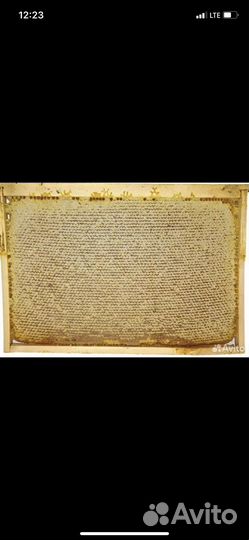 12:23 LTE
Avito
Avito